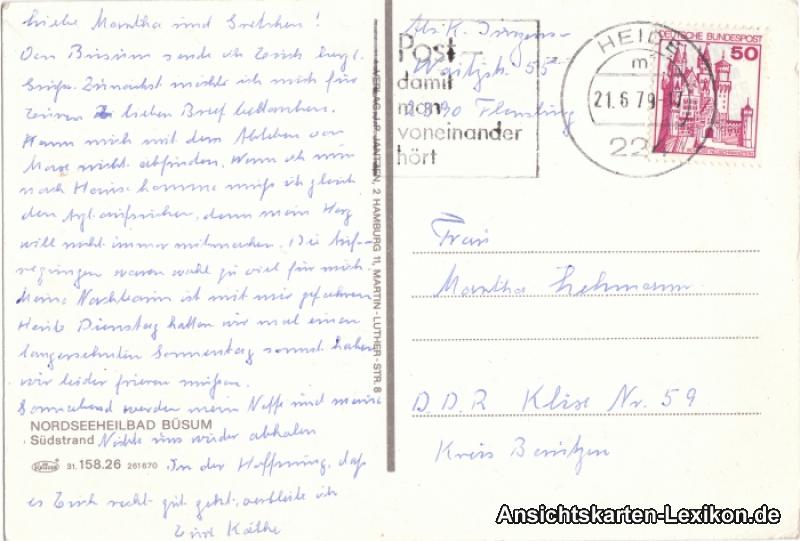 Liebe Martha und Gretchen!
Von Büsum sende ich Euch herzl.
Grüße. Zunächst möchte ich mich für
Euren lieben Brief bedanken.
Kann mich mit dem Ableben von
Max nicht abfinden. Wenn ich nun
nach Hause komme muß ich gleich
den Arzt aufsuchen, denn mein Herz
will nicht immer mitmachen. Die Auf-
regungen waren wohl zu viel für mich.
Meine Nachbarin ist mit mir gefahren
Heute Dienstag hatten wir mal einen
langersehnten Sonnentag sonst haben
wir leider frieren müssen.
Sonnabend werden mein Neffe und meine
NORDSEEHEILBAD BÜSUM
Südstrand
Nichte uns wieder abholen
31. 158.26 261670
In der Hoffnung, daß
es Euch recht gut geht, verbleibe ich
Eure Käthe
VERLAG J. P. JANTZEN, 2 HAMBURG 11, MARTIN-LUTHER-STR. 8
Abs. K. Jürgens
Waitzstr. 55
2390 Flensburg
Post-
damit
man
voneinander
hört
HEIDE
m
21.6.79-17
DEUTSCHE BUNDESPOST
50
Frau
Martha Lehmann
D.D.R Klixe Nr. 59
Kreis Bautzen
Ansichtskarten-Lexikon.de